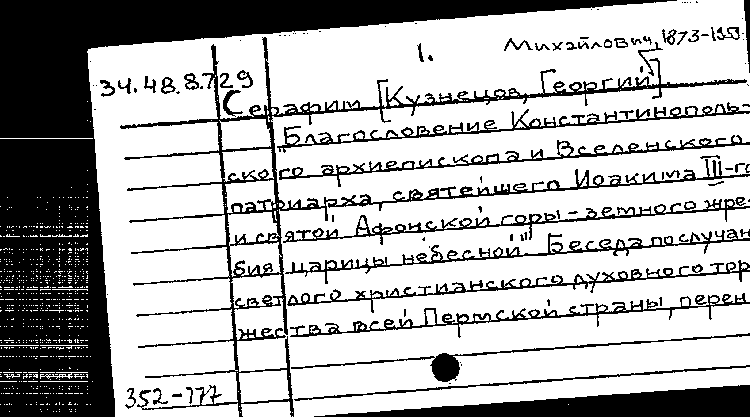 1.
Михайлович, 1873-1959
34.48.8.729
Серафим [Кузнецов, Георгий]
"Благословение Константинополь-
ского архиепископа и Вселенского
патриарха, святейшего Иоакима III-го
и святой Афонской горы - земного жре-
бия царицы небесной". Беседа по случаю
светлого христианского духовного тор-
жества всей Пермской страны, перен
352-777